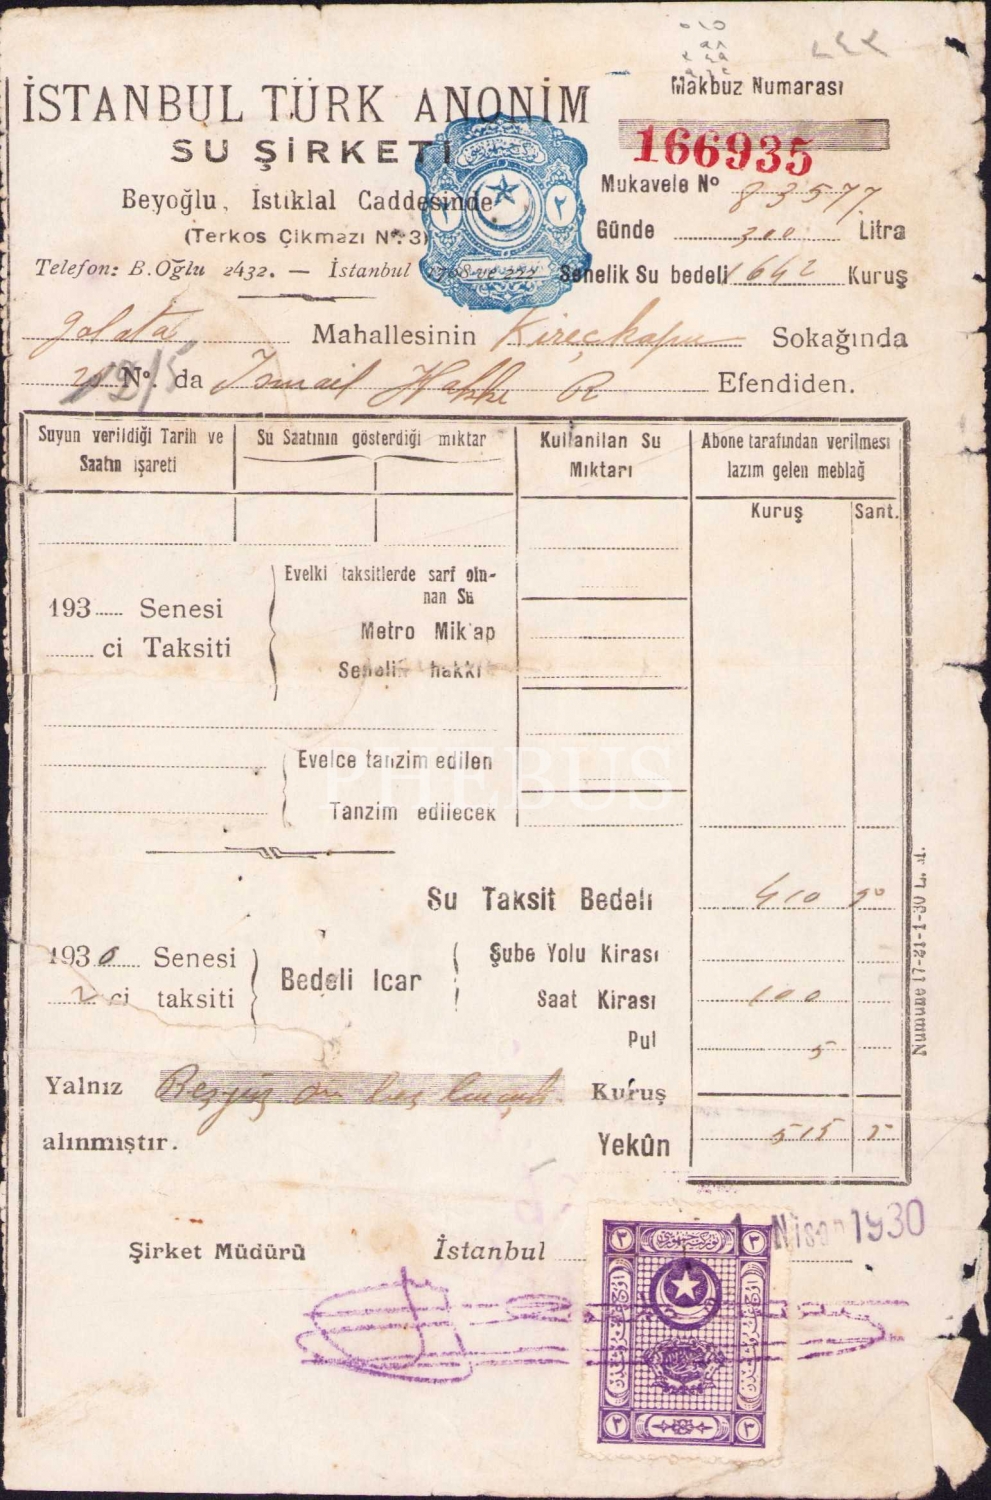 Makbuz Numarası
İSTANBUL TÜRK ANONİM
SU ŞİRKETİ
166935
Mukavele Nº 83577
Beyoğlu, İstiklal Caddesinde
Günde 300 Litra
(Terkos Çikmazı Nº. 3)
Telefon: B. Oğlu 2432. — İstanbul
Senelik Su bedeli 1642 Kuruş
galata Mahallesinin Kireçkapu Sokağında
Nº. da İsmail Hakkı R Efendiden.
Suyun verildiği Tarih ve Saatın işareti
Su Saatının gösterdiği mıktar
Kullanılan Su Mıktarı
Abone tarafından verilmesi lazım gelen meblağ
Kuruş Sant.
Evelki taksitlerde sarf olu-
nan Su
193 Senesi
ci Taksiti
Metro Mik'ap
Senelik hakkı
Evelce tanzim edilen
Tanzim edilecek
PHEBUS
Su Taksit Bedeli 410
1930 Senesi
2 ci taksiti
Bedeli Icar
Şube Yolu Kirası
Saat Kirası 100
Pul 5
Yalnız Beşyüz on beş Kuruş
alınmıştır.
Yekûn 515
Numune 17-21-1-30 L. M.
Şirket Müdürü
İstanbul
1 Nisan 1930
٣ ٣
٣ ٣